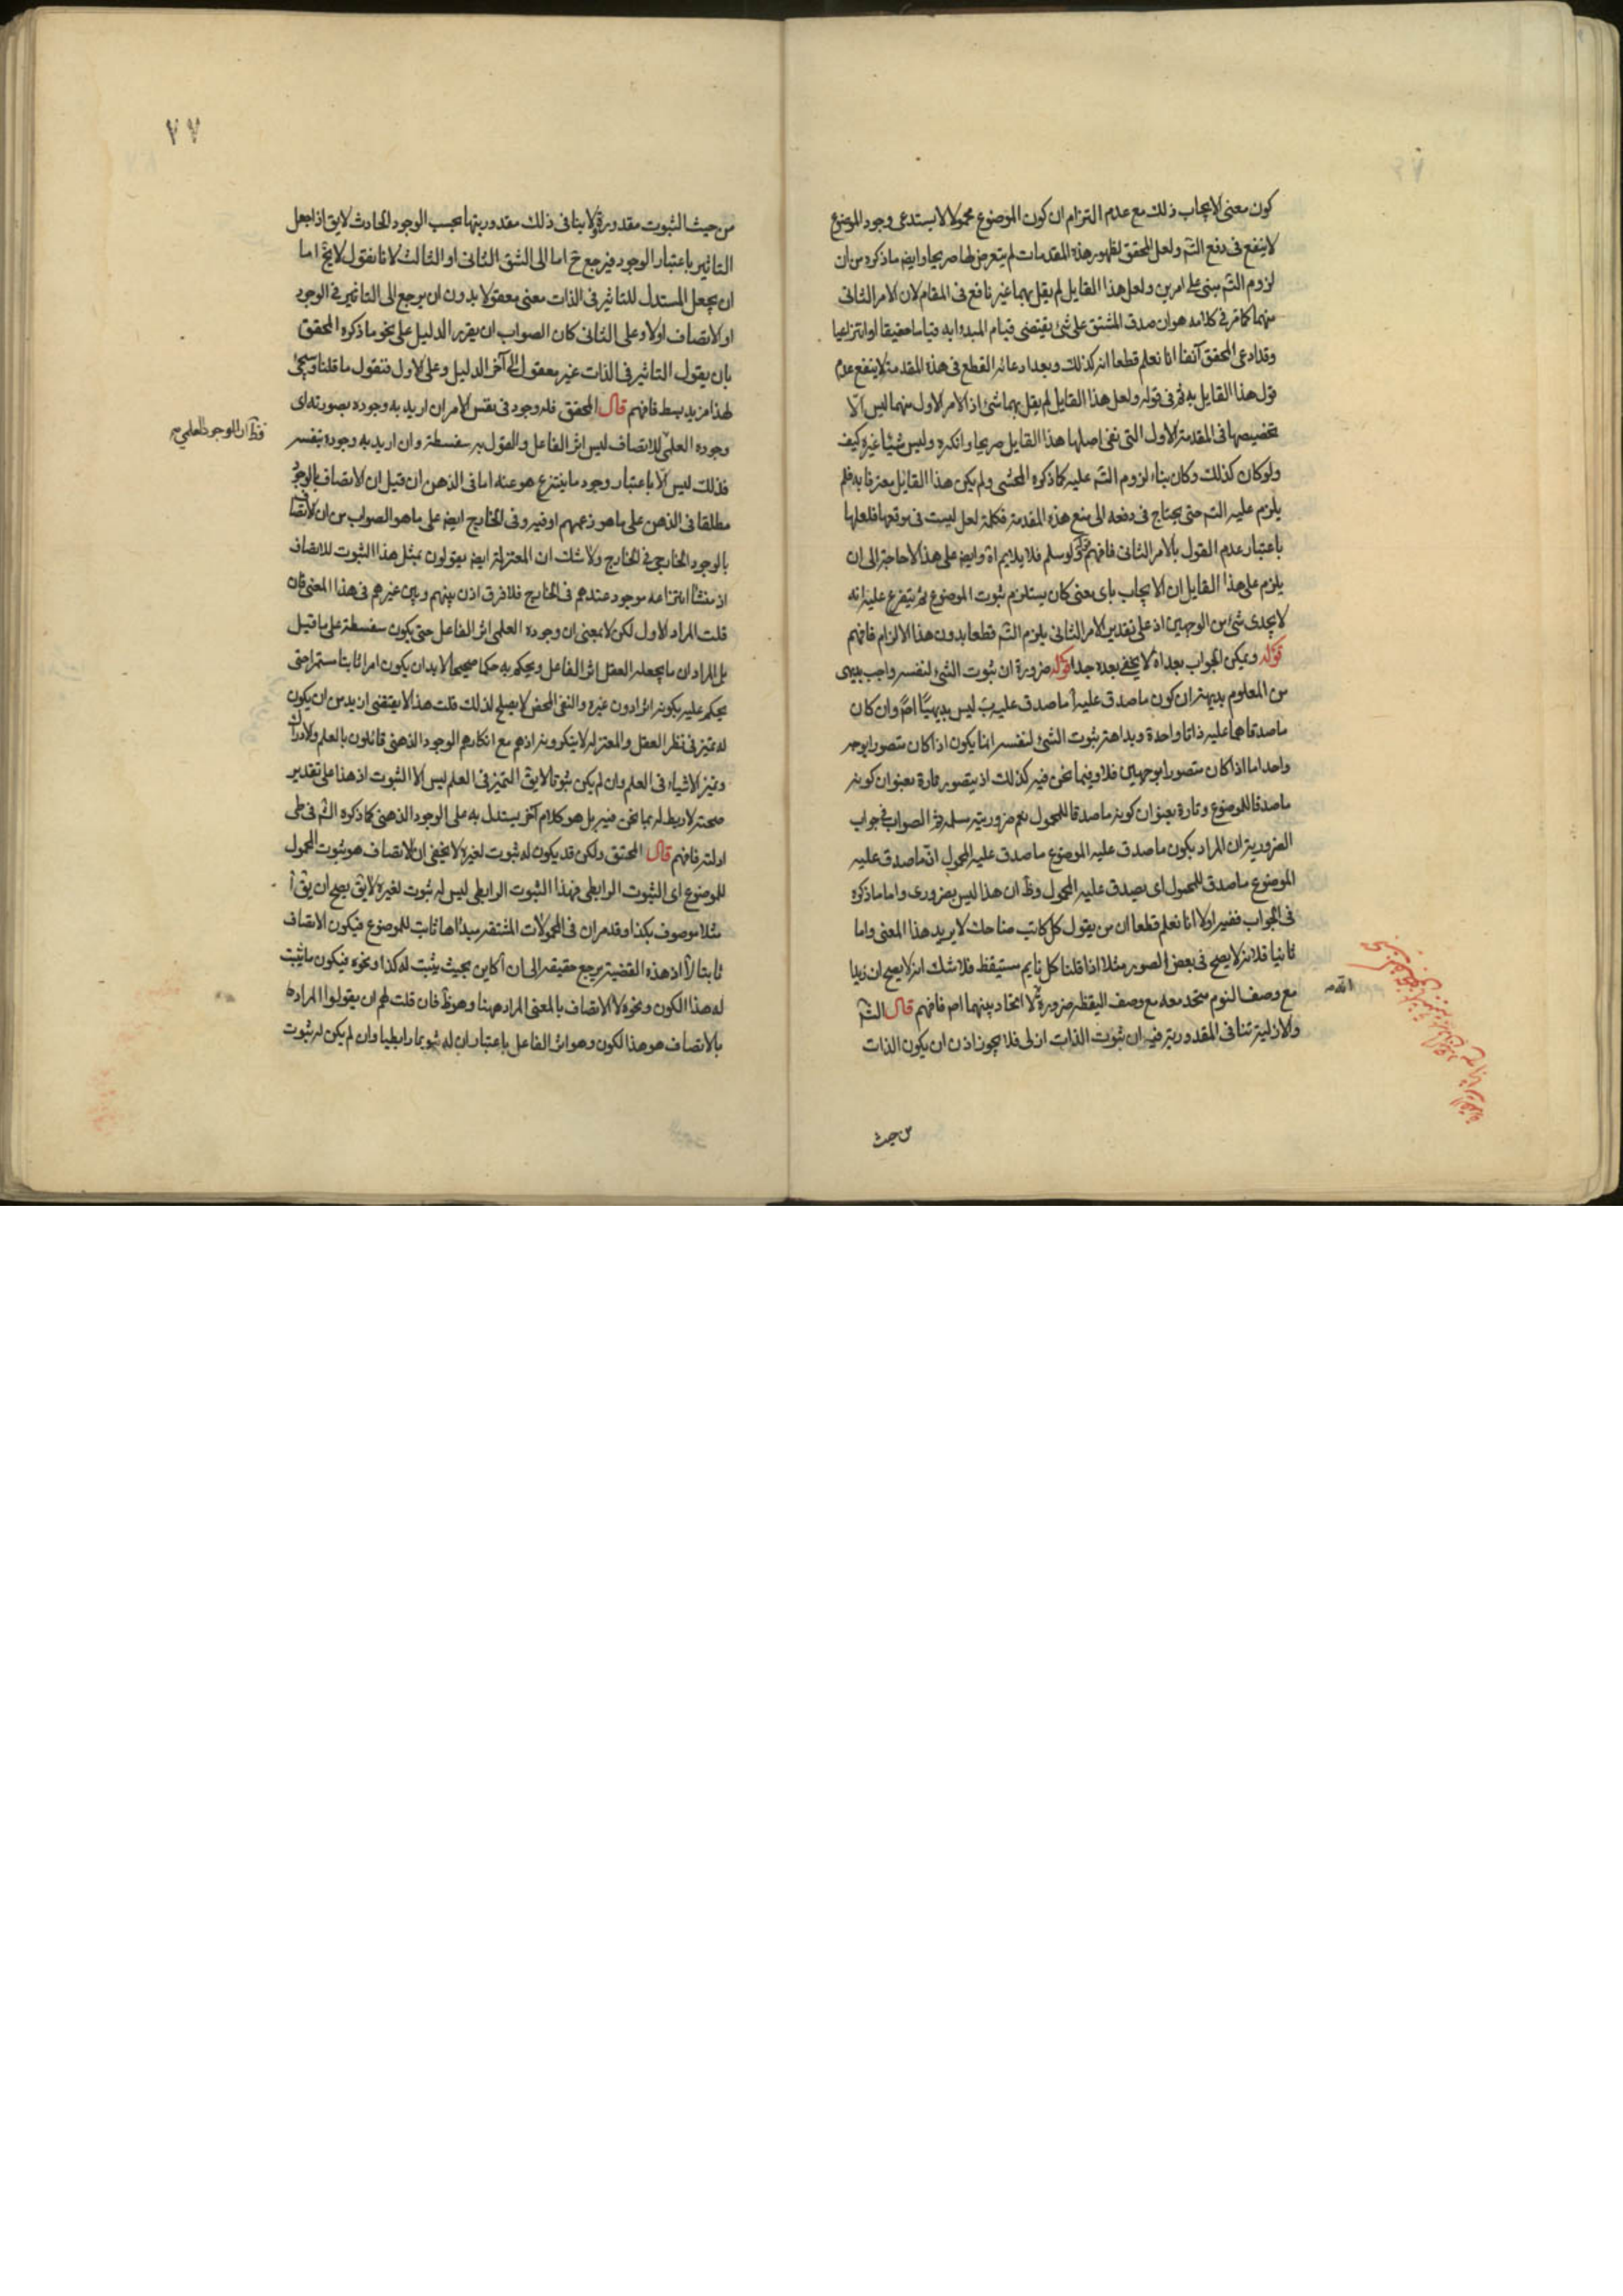 كون معنى الايجاب ذلك مع عدم التزام ان كون الموضوع محمولا لا يستدعى وجود الموضوع
لا ينفع فى دفع التسم ولعل المحقق لظهور هذه المقدمات لم يتعرض لها صريحا وايضا ما ذكره من ان
لزوم التسم مبنى على امرين ولعل هذا القايل لم يقل بهما غير نافع فى المقام لان الامر الثانى
منهما كما مر فى كلامه هو ان صدق المشتق على شئ يقتضى قيام المبدء به قياما حقيقيا او انتزاعيا
وقد ادعى المحقق آنفا انا نعلم قطعا انه كذلك وبعد ادعائه القطع فى هذه المقدمة لا ينفع عدم
قول هذا القايل به ثم فى قوله ولعل هذا القايل لم يقل بهما شئ اذ الامر الاول منهما ليس الا
تخصيصها فى المقدمة الاول التى نفى اصلها هذا القايل صريحا وانكره وليس شيئا غيره كيف
ولو كان كذلك وكان بناء لزوم التسم عليه كما ذكره المحشى ولم يكن هذا القايل معترفا به فلم
يلزم عليه التسم حتى يحتاج فى دفعه الى منع هذه المقدمة فكلمة لعل ليست فى موقعها فلعلها
باعتبار عدم القول بالامر الثانى فافهم قوله ولو سلم فلا يلايم اه وايضا على هذا لا حاجة الى ان
يلزم على هذا القايل ان الايجاب باى معنى كان يستلزم ثبوت الموضوع ثم يتفرع عليه انه
لا يجدى شئ من الوجهين اذ على تقدير الامر الثانى يلزم التسم قطعا بدون هذا الالزام فافهم
قوله ويمكن الجواب بعد اه لا يخفى بعده جدا قوله ضرورة ان ثبوت الشئ لنفسه واجب بديهى
من المعلوم بديهة ان كون ما صدق عليه أ ما صدق عليه ب ليس بديهيا اصلا وان كان
ما صدقاهما عليه ذاتا واحدة وبداهة ثبوت الشئ لنفسه انما يكون اذا كان متصورا بوجه
واحد اما اذا كان متصورا بوجهين فلا وفيما نحن فيه كذلك اذ يتصور تارة بعنوان كونه
ما صدقا للموضوع وتارة بعنوان كونه ما صدقا للمحمول نعم ضروريته مسلمة ثم الصواب فى جواب
الضرورية ان المراد بكون ما صدق عليه الموضوع ما صدق عليه المحمول ان ما صدق عليه
الموضوع ما صدق للمحمول اى يصدق عليه المحمول وظ ان هذا ليس بضرورى واما ما ذكره
فى الجواب ففيه اولا انا نعلم قطعا ان من يقول كل كاتب ضاحك لا يريد هذا المعنى واما
ثانيا فلانه لا يصح فى بعض الصور مثلا اذا قلنا كل نايم مستيقظ فلا شك انه لا يصح ان زيدا
مع وصف النوم متحد معه مع وصف اليقظة ضرورة لا اتحاد بينهما اصلا فافهم قال الشم
والازلية تنافى المقدورية فيه ان ثبوت الذات ازلى فلا يجوز اذن ان يكون الذات
من حيث
٧٧
من حيث الثبوت مقدورة ولا ينافى ذلك مقدوريتها بحسب الوجود الحادث لايق اذا جعل
التاثير باعتبار الوجود فيرجع ح اما الى الشق الثانى او الثالث لانا نقول لا يخ اما
ان يجعل المستدل للتاثير فى الذات معنى معقولا بدون ان يرجع الى التاثير فى الوجود
او الاتصاف او لا وعلى الثانى كان الصواب ان يقرر الدليل على نحو ما ذكره المحقق
بان يقول التاثير فى الذات غير معقول الى آخر الدليل وعلى الاول فنقول ما قلنا وسيجئ
لهذا مزيد بسط فافهم قال المحقق فله وجود فى نفس الامر ان اريد به وجوده بصورته اى
وجوده العلمى للاتصاف ليس اثر الفاعل والقول به سفسطة وان اريد به وجوده بنفسه
فظ ان الوجود العلمى
فذلك ليس الا باعتبار وجود ما ينتزع هو عنه اما فى الذهن ان قيل ان الاتصاف بالوجود
مطلقا فى الذهن على ما هو زعمهم او فيه وفى الخارج ايضا على ما هو الصواب من ان الاتصاف
بالوجود الخارجى فى الخارج ولا شك ان المعتزلة ايضا يقولون بمثل هذا الثبوت للاتصاف
اذ منشأ انتزاعه موجود عندهم فى الخارج فلا فرق اذن بينهم وبين غيرهم فى هذا المعنى فان
قلت المراد الاول لكن لا بمعنى ان وجوده العلمى اثر الفاعل حتى يكون سفسطة على ما قيل
بل المراد ان ما يجعله العقل اثر الفاعل ويحكم به حكما صحيحا لا بد ان يكون امرا ثابتا مستمرا حتى
يحكم عليه بكونه اثرا دون غيره والنفى المحض لا يصلح لذلك قلت هذا لا يقتضى ازيد من ان يكون
له تميز فى نظر العقل والمعتزلة لا ينكرونه اذهم مع انكارهم الوجود الذهنى قائلون بالعلم والادراك
وتميز الاشياء فى العلم وان لم يكن ثبوتا لايق التميز فى العلم ليس الا الثبوت اذ هذا على تقدير
صحته لا ربط له بما نحن فيه بل هو كلام آخر يستدل به على الوجود الذهنى كما ذكره الشم فى طى
ادلته فافهم قال المحقق ولكن قد يكون له ثبوت لغيره لا يخفى ان الاتصاف هو ثبوت المحمول
للموضوع اى الثبوت الرابطى فهذا الثبوت الرابطى ليس له ثبوت لغيره لايق يصح ان يق أ
مثلا موصوف بكذا وقد مر ان فى المحمولات المشتقة مبداها ثابت للموضوع فيكون الاتصاف
ثابتا لأ اذ هذه القضية يرجع حقيقة الى ان أ كاين بحيث يثبت له كذا ونحوه فيكون ما يثبت
له هذا الكون ونحوه لا الاتصاف بالمعنى المراد ههنا وهو ظ فان قلت لهم ان يقولوا المراد
بالاتصاف هو هذا الكون وهو اثر الفاعل باعتبار ان له ثبوتا رابطيا وان لم يكن له ثبوت